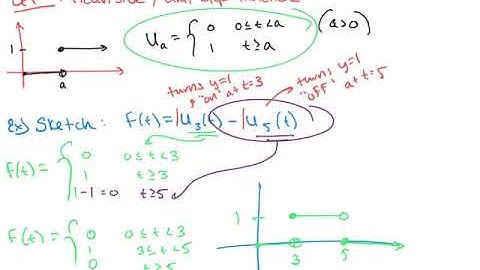 Heaviside / unit step function
1
a
U_a = { 0 0≤t<a
1 t≥a
(a>0)
turns y=1
"on" at t=3
turns y=1
"off" at t=5
Ex) Sketch: f(t) = 1U_3(t) - 1U_5(t)
f(t) = { 0 0≤t<3
1 t≥3
1-1=0 t≥5
f(t) = { 0 0≤t<3
1 3≤t<5
0 t≥5
1
3 5